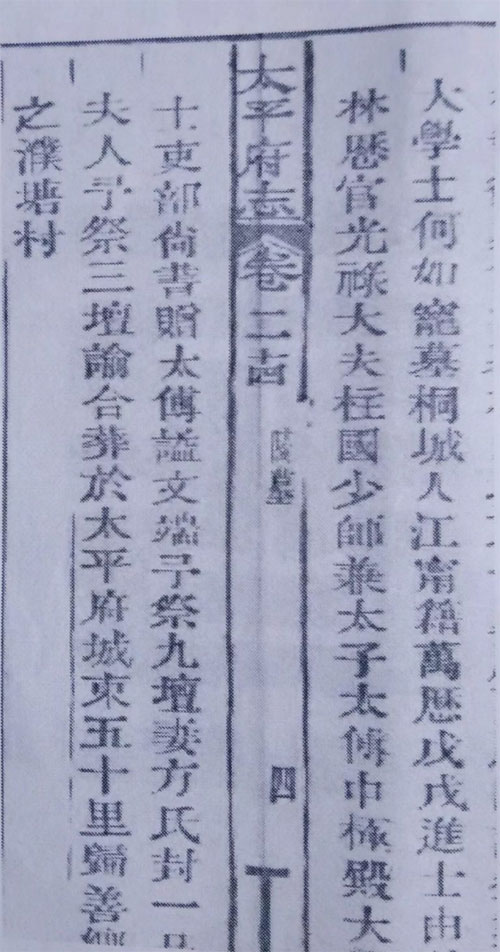 大學士何如寵墓桐城人江甯籍萬厯戊戌進士由
林厯官光祿大夫柱國少師兼太子太傅中極殿大
太平府志 卷二十四 陵墓 四
士吏部尚書贈太傅諡文端予祭九壇妻方氏封一品
夫人予祭三壇諭合葬於太平府城東五十里歸善鄉
之濮塘村